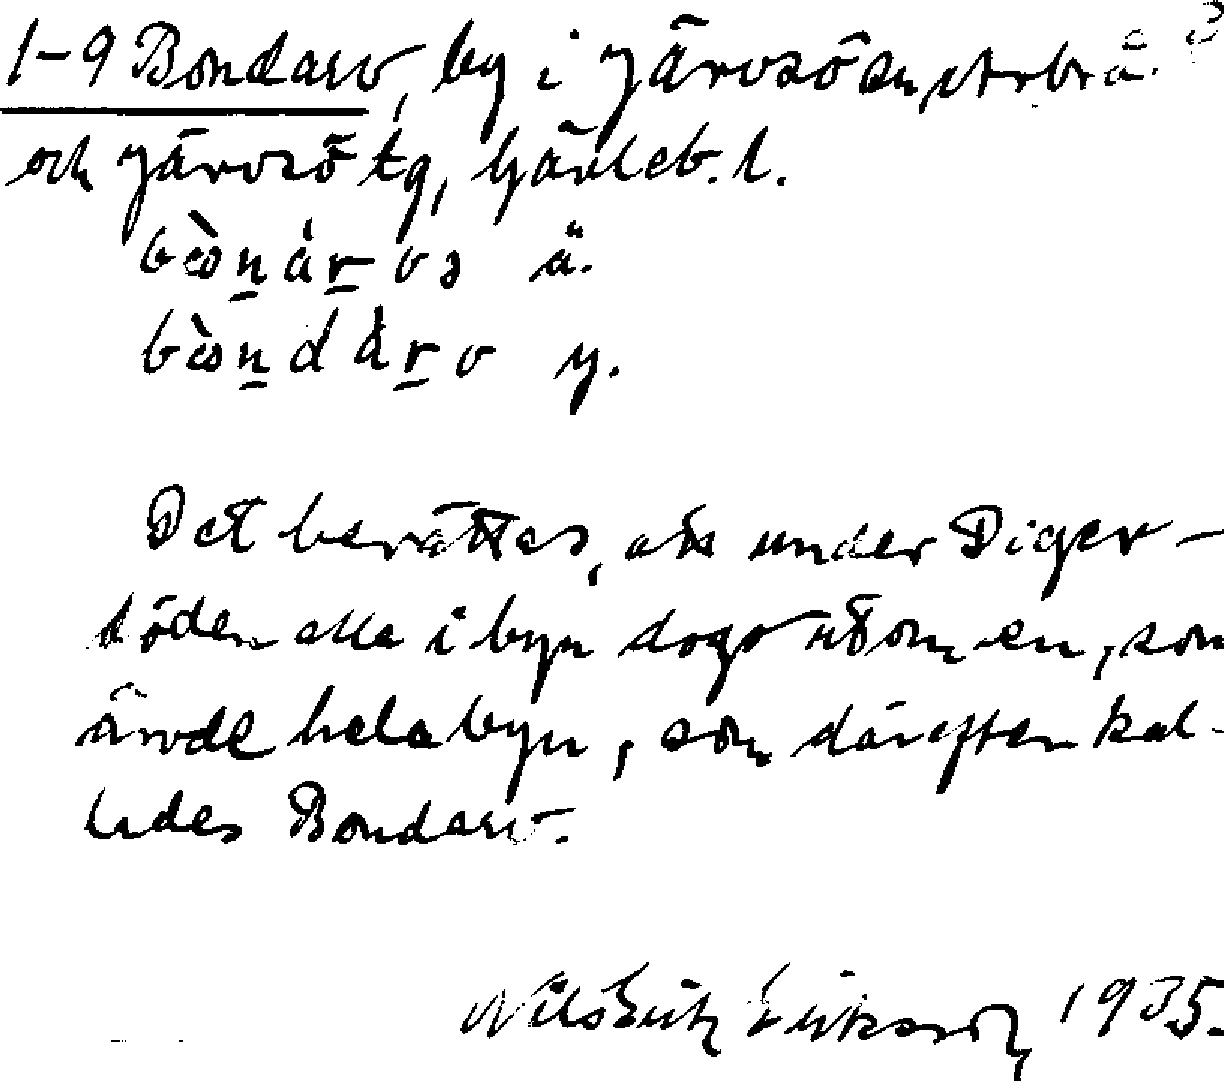 1-9 Bondarv, by i Järvsö sn, Arbrå
och Järvsö tg, Gävleb. l.
ä.
y.
Det berättas, att under Diger-
döden alla i byn dogo utom en, som
ärvde hela byn, som därefter kal-
lades Bondarv.
Nils Erik Eriksson, 1935.